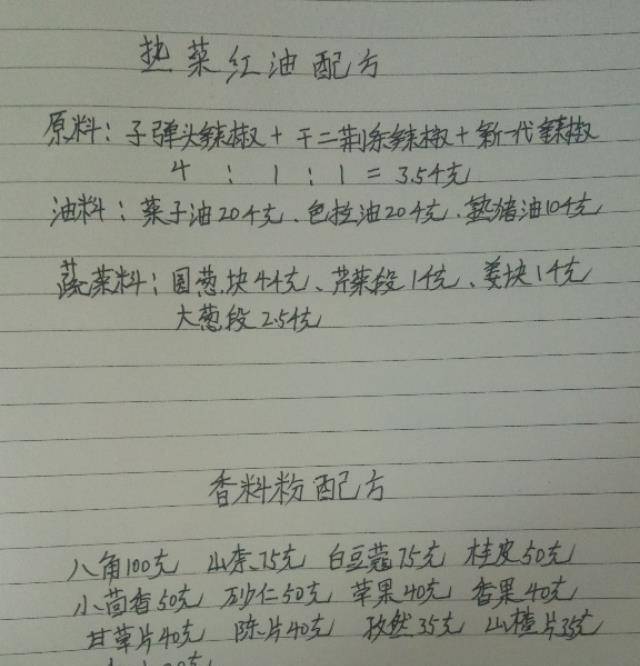 热菜红油配方
原料：子弹头辣椒+干二荆条辣椒+新一代辣椒
4：1：1=3.5千克
油料：菜子油20千克、色拉油20千克、熟猪油10千克
蔬菜料：圆葱块4千克、芹菜段1千克、姜块1千克
大葱段2.5千克
香料粉配方
八角100克 山柰75克 白豆蔻75克 桂皮50克
小茴香50克 砂仁50克 草果40克 香果40克
甘草片40克 陈片40克 孜然35克 山楂片35克